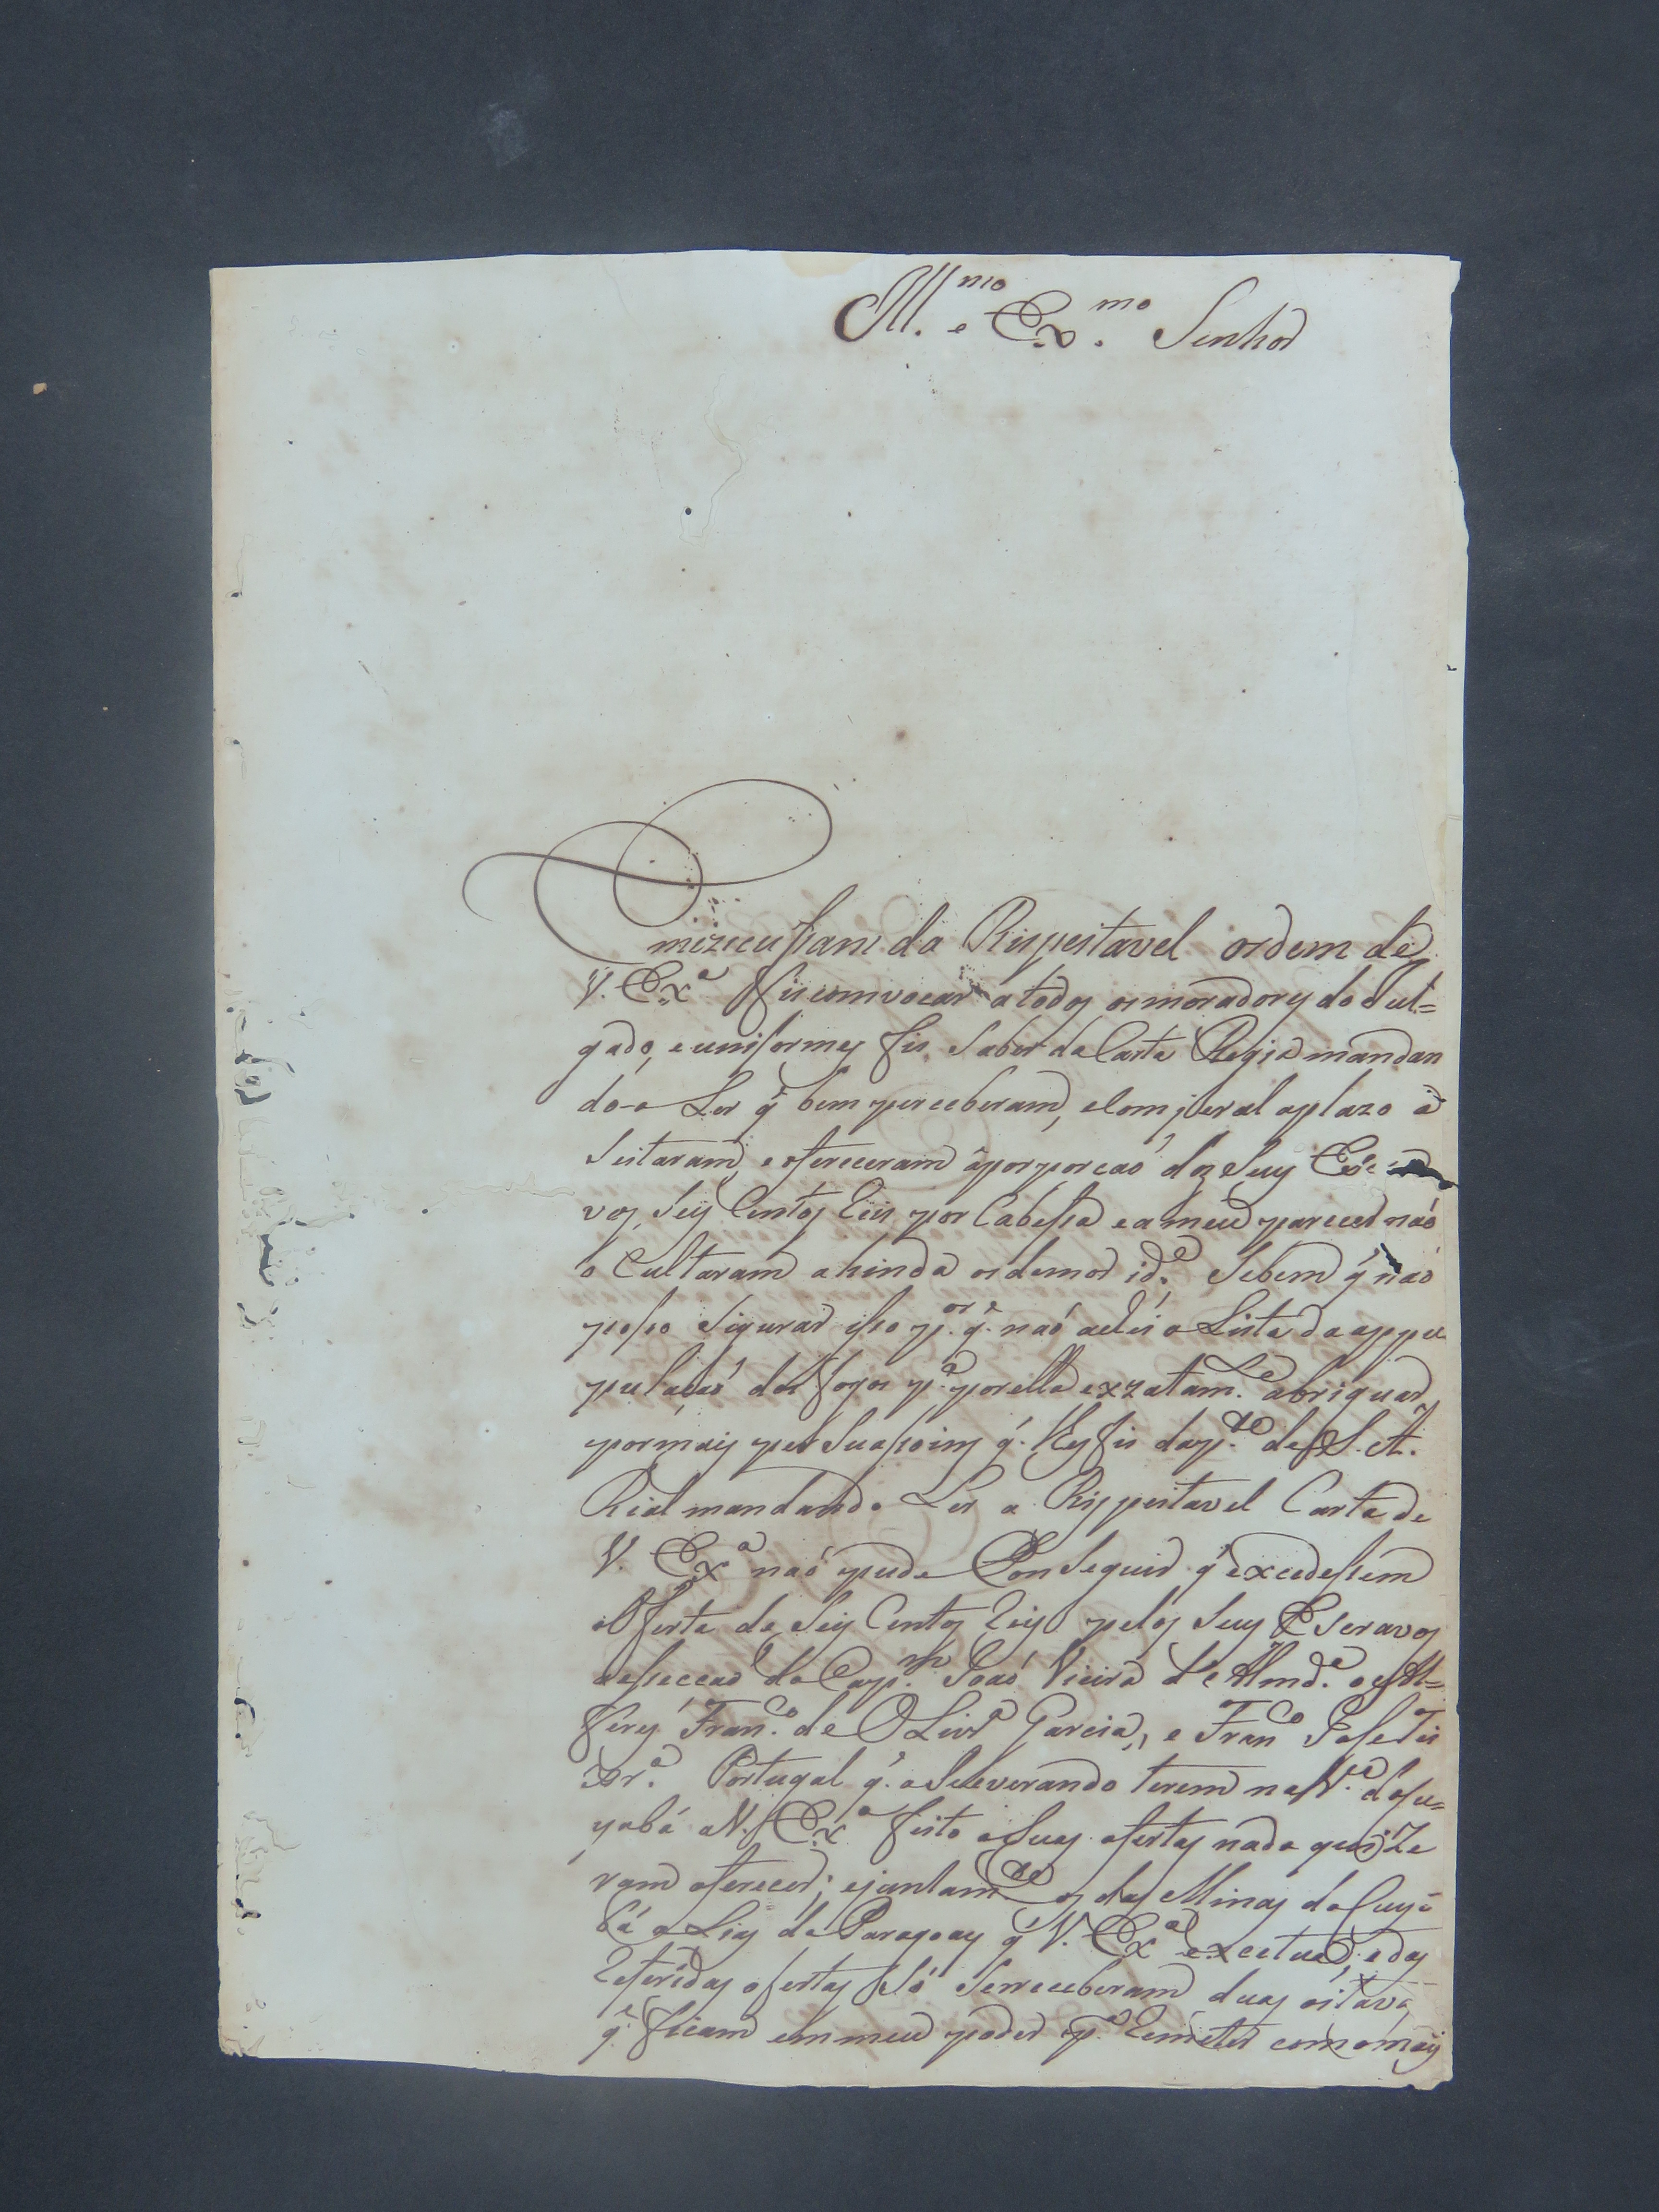 Ill.mo e Ex.mo Senhor
Em izecusam da Rispeitavel ordem de
V. Ex.a fis comvocar a todos os moradores do Jul=
gado, e uniformes fis saber da Carta Regia mandan
do-a Ler q̃ bem perceberam, e Com jeral aplazo a
seitaram, e ofereceram a porporcaõ dos Seus Escra
vos, Seis Centos Reis por Cabessa e a meu parecer naõ
o Cultaram ahinda os de mor id.e Se bem q̃ naõ
posso sigurar isso p.or q.e naõ a Lista da appu
pulaçaõ dos fogos p.a por ella exzatam.e abriguar,
por mais persuasoins q̃. lhes fis da p.te de S. A.
Rial mandando Ler a Rispeitavel Carta de
V. Ex.a naõ pude Conseguir q̃ excedessem
a Oferta de Seis Centos Reis pelos Seus Escravos
a esseccaõ do Cap.m Joaõ Vieira de Almd.a o Al=
feres Fran.co de OLivr.a Garcia, e Fran.co Jose Tis
Portugal q̃. a Seeverando terem na V.a do Cu=
yabá a V. Ex.a feito as Suas ofertas nada quize
ram oferecer; e juntam.te os das Minas do Cuya
bá a Lias de Paragoay q̃ V. Ex.a exectua; e das
Referidas ofertas Só Se receberam duas oitavas
q.e ficam em meu poder p.a Remeter com o mais